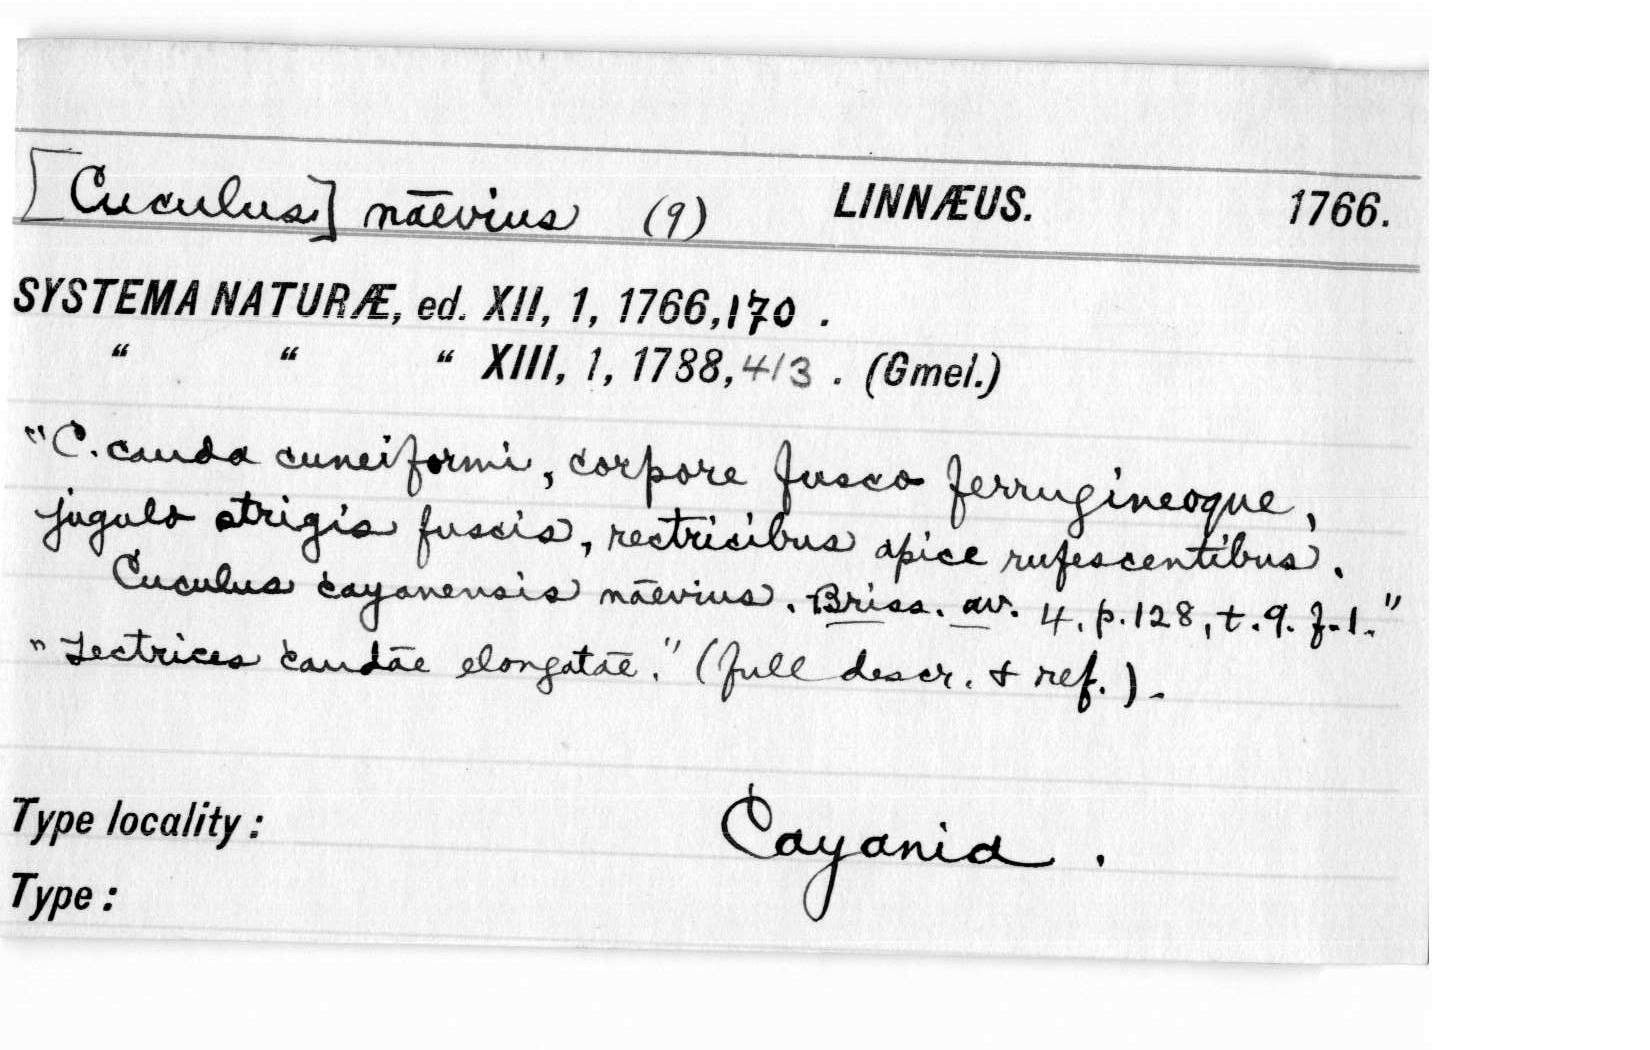 [Cuculus] nāevius (9) LINNÆUS. 1766.
SYSTEMA NATURÆ, ed. XII, 1, 1766, 170 .
“ “ “ XIII, 1, 1788, 413 . (Gmel.)
"C. cauda cuneiformi, corpore fusco ferrugineoque,
jugulo strigis fuscis, rectricibus apice rufescentibus.
Cuculus cayanensis nāevius. Briss. av. 4. p. 128, t. 9. f. 1."
"Tectrices caudāe elongatāe." (full descr. & ref.) -
Type locality: Cayania .
Type: